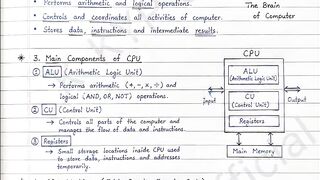 Performs arithmetic and logical operations.
The Brain
of Computer
• Controls and coordinates all activities of computer.
• Stores data, instructions and intermediate results.
* 3. Main Components of CPU
① ALU (Arithmetic Logic Unit)
→ Performs arithmetic (+, -, ×, ÷) and
logical (AND, OR, NOT) operations.
② CU (Control Unit)
→ Controls all parts of the computer and
manages the flow of data and instructions.
③ Registers
→ Small storage locations inside CPU used
to store data, instructions and addresses
temporarily.
CPU
ALU
(Arithmetic Logic Unit)
CU
(Control Unit)
Registers
Input
Output
Main Memory